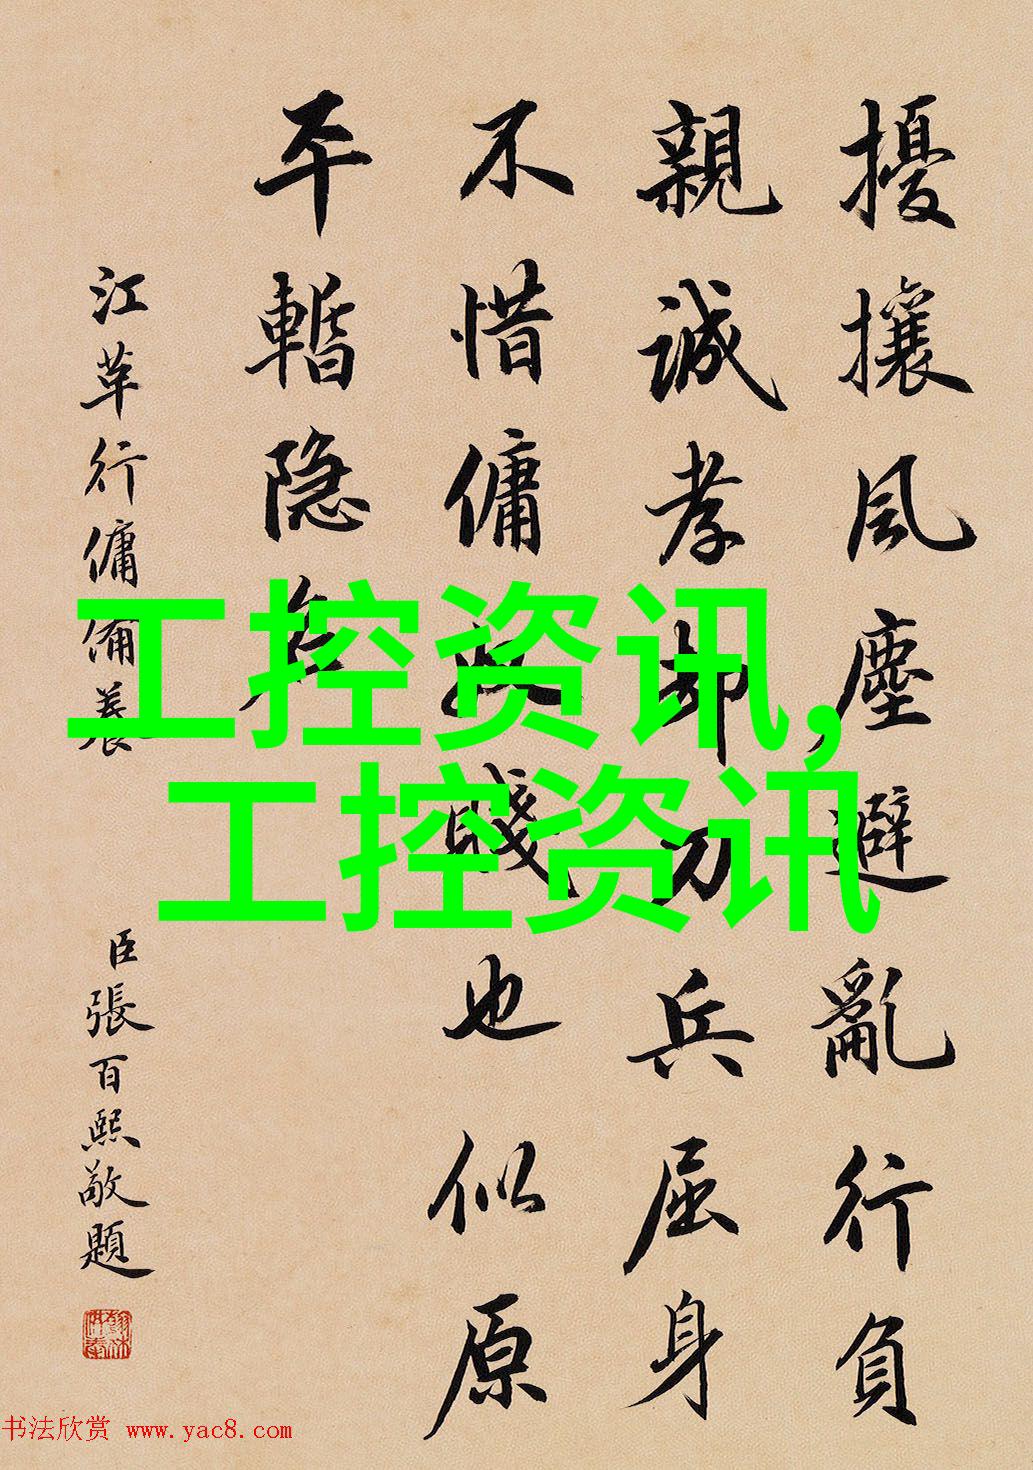 擾攘風塵避亂行負
親誠孝却刀兵屈身
不惜傭賤也似原
平暫隐
江革行傭備養
臣張百熙敬題
工控资讯,
工控资讯
书法欣赏 www.yac8.com